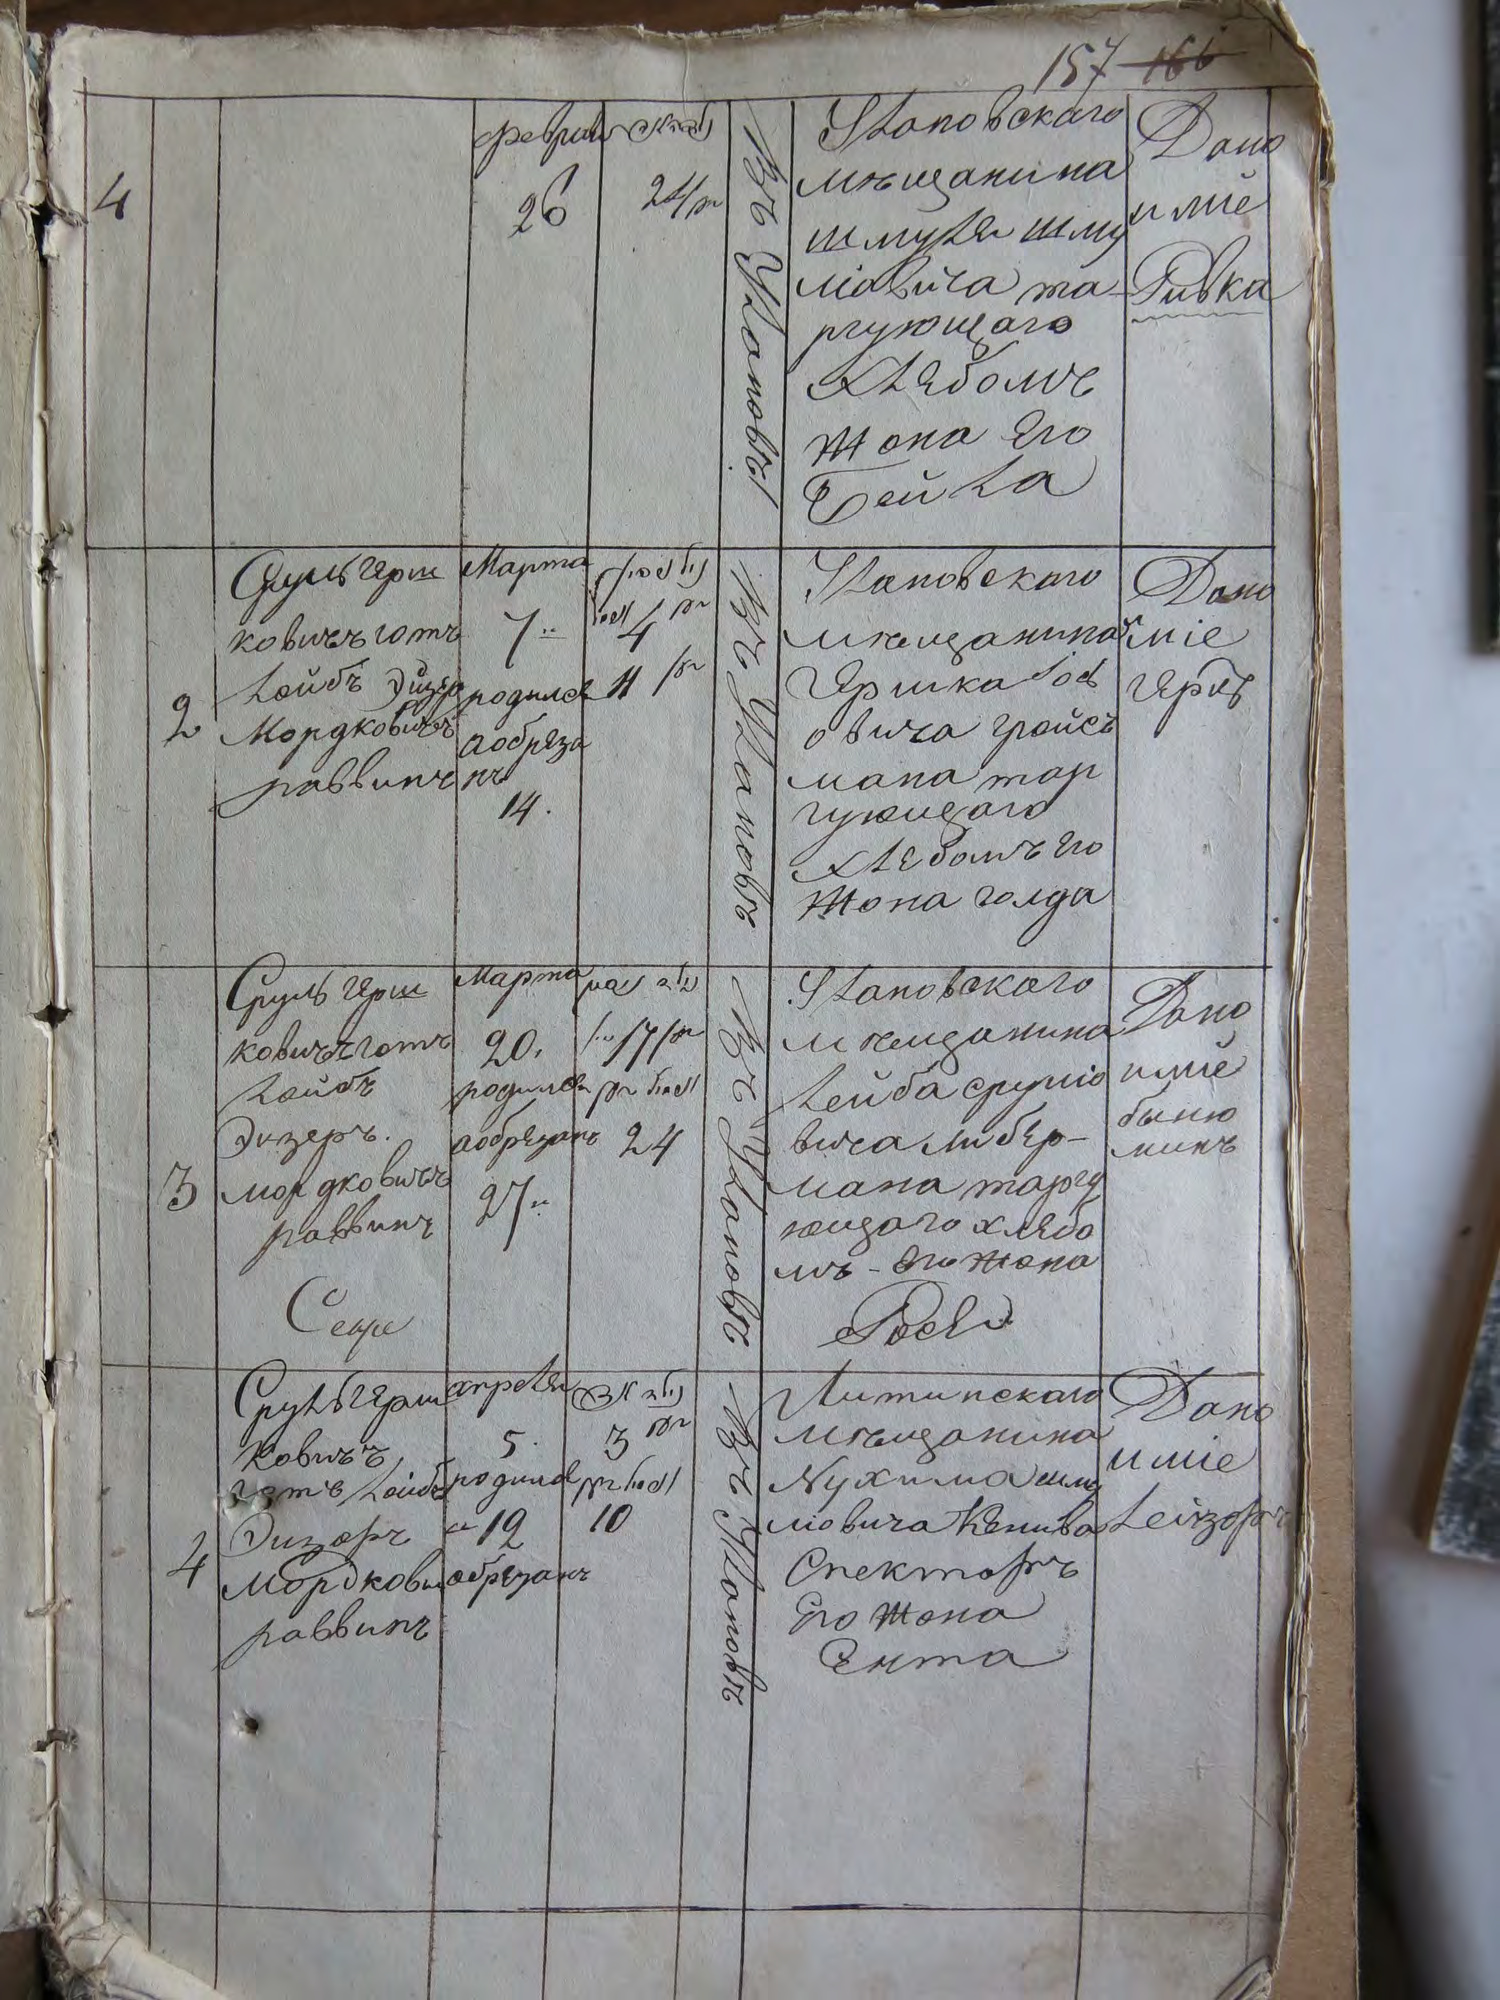 157 166
4
февраля
26
24
Въ Улановъ
Улановскаго
мещанина
шмуля шму
ліовича та
ргующаго
хлебомъ
жона Его
Бейла
Дано
иміе
Ривка
2
Сруль герш
ковичъ готъ
Лейбъ Эйзер
Мордковичъ
раввинъ
Марта
7
родился
а обреза
нъ
14.
4
11
Въ Улановъ
Улановскаго
мещанина
Гершка
овича гройсъ
мана тор
гующаго
хлебомъ Его
жона голда
Дано
иміе
герш
3
Сруль герш
ковичъ готъ
Лейбъ
Эизеръ.
мордковичъ
раввинъ
Марта
20.
родился
а обрезанъ
27
17
24
Въ Улановъ
Улановскаго
мещанина
Лейба сруліо
вича либер-
мана торгу
ющаго хлебо
мъ - Его жона
Дано
иміе
быню
минъ
4
Сруль герш
ковичъ
готъ Лейбъ
Эизеръ
Мордкови
раввинъ
апреля
5.
родился
а 12
обрезанъ
3
10
Въ Улановъ
Литинскаго
мещанина
Нухима шму
ліовича
Спекторъ
Его жона
Ента
Дано
иміе
Лейзоръ